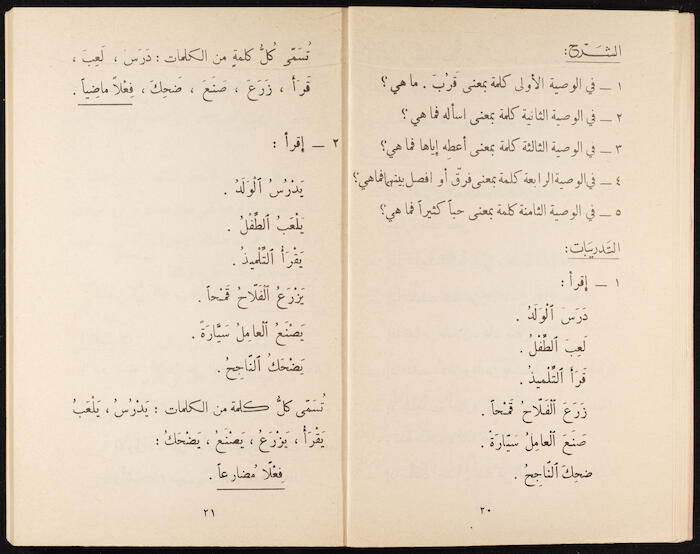 الشَرْح :
١ ــ في الوصية الأولى كلمة بمعنى قَرُبَ . ما هي ؟
٢ ــ في الوصية الثانية كلمة بمعنى اسأله فما هي ؟
٣ ــ في الوصية الثالثة كلمة بمعنى أعطِه إياها فما هي ؟
٤ ــ في الوصية الرابعة كلمة بمعنى فرّق أو افصل بينهما فما هي ؟
٥ ــ في الوصية الثامنة كلمة بمعنى حباً كثيراً فما هي ؟
التدريبات :
١ ــ إقرأ :
دَرَسَ ٱلْوَلَدُ .
لَعِبَ ٱلطِّفْلُ .
قَرَأَ ٱلتِّلْمِيذُ .
زَرَعَ ٱلْفَلَّاحُ قَمْحاً .
صَنَعَ ٱلْعامِلُ سَيّارَةً .
ضَحِكَ ٱلنّاجِحُ .
٢٠
تُسَمّى كُلُّ كلمةٍ من الكلمات : دَرَسَ ، لَعِبَ ،
قَرَأَ ، زَرَعَ ، صَنَعَ ، ضَحِكَ ، فِعْلاً ماضِياً .
٢ ــ إقرأ :
يَدْرُسُ ٱلْوَلَدُ .
يَلْعَبُ ٱلطِّفْلُ .
يَقْرَأُ ٱلتِّلْمِيذُ .
يَزْرَعُ ٱلْفَلَّاحُ قَمْحاً .
يَصْنَعُ ٱلْعامِلُ سَيَّارَةً .
يَضْحَكُ ٱلنّاجِحُ .
تُسَمّى كلُّ كلمة من الكلمات : يَدْرُسُ ، يَلْعَبُ
يَقْرَأُ ، يَزْرَعُ ، يَصْنَعُ ، يَضْحَكُ :
فِعْلاً مُضارعاً .
٢١